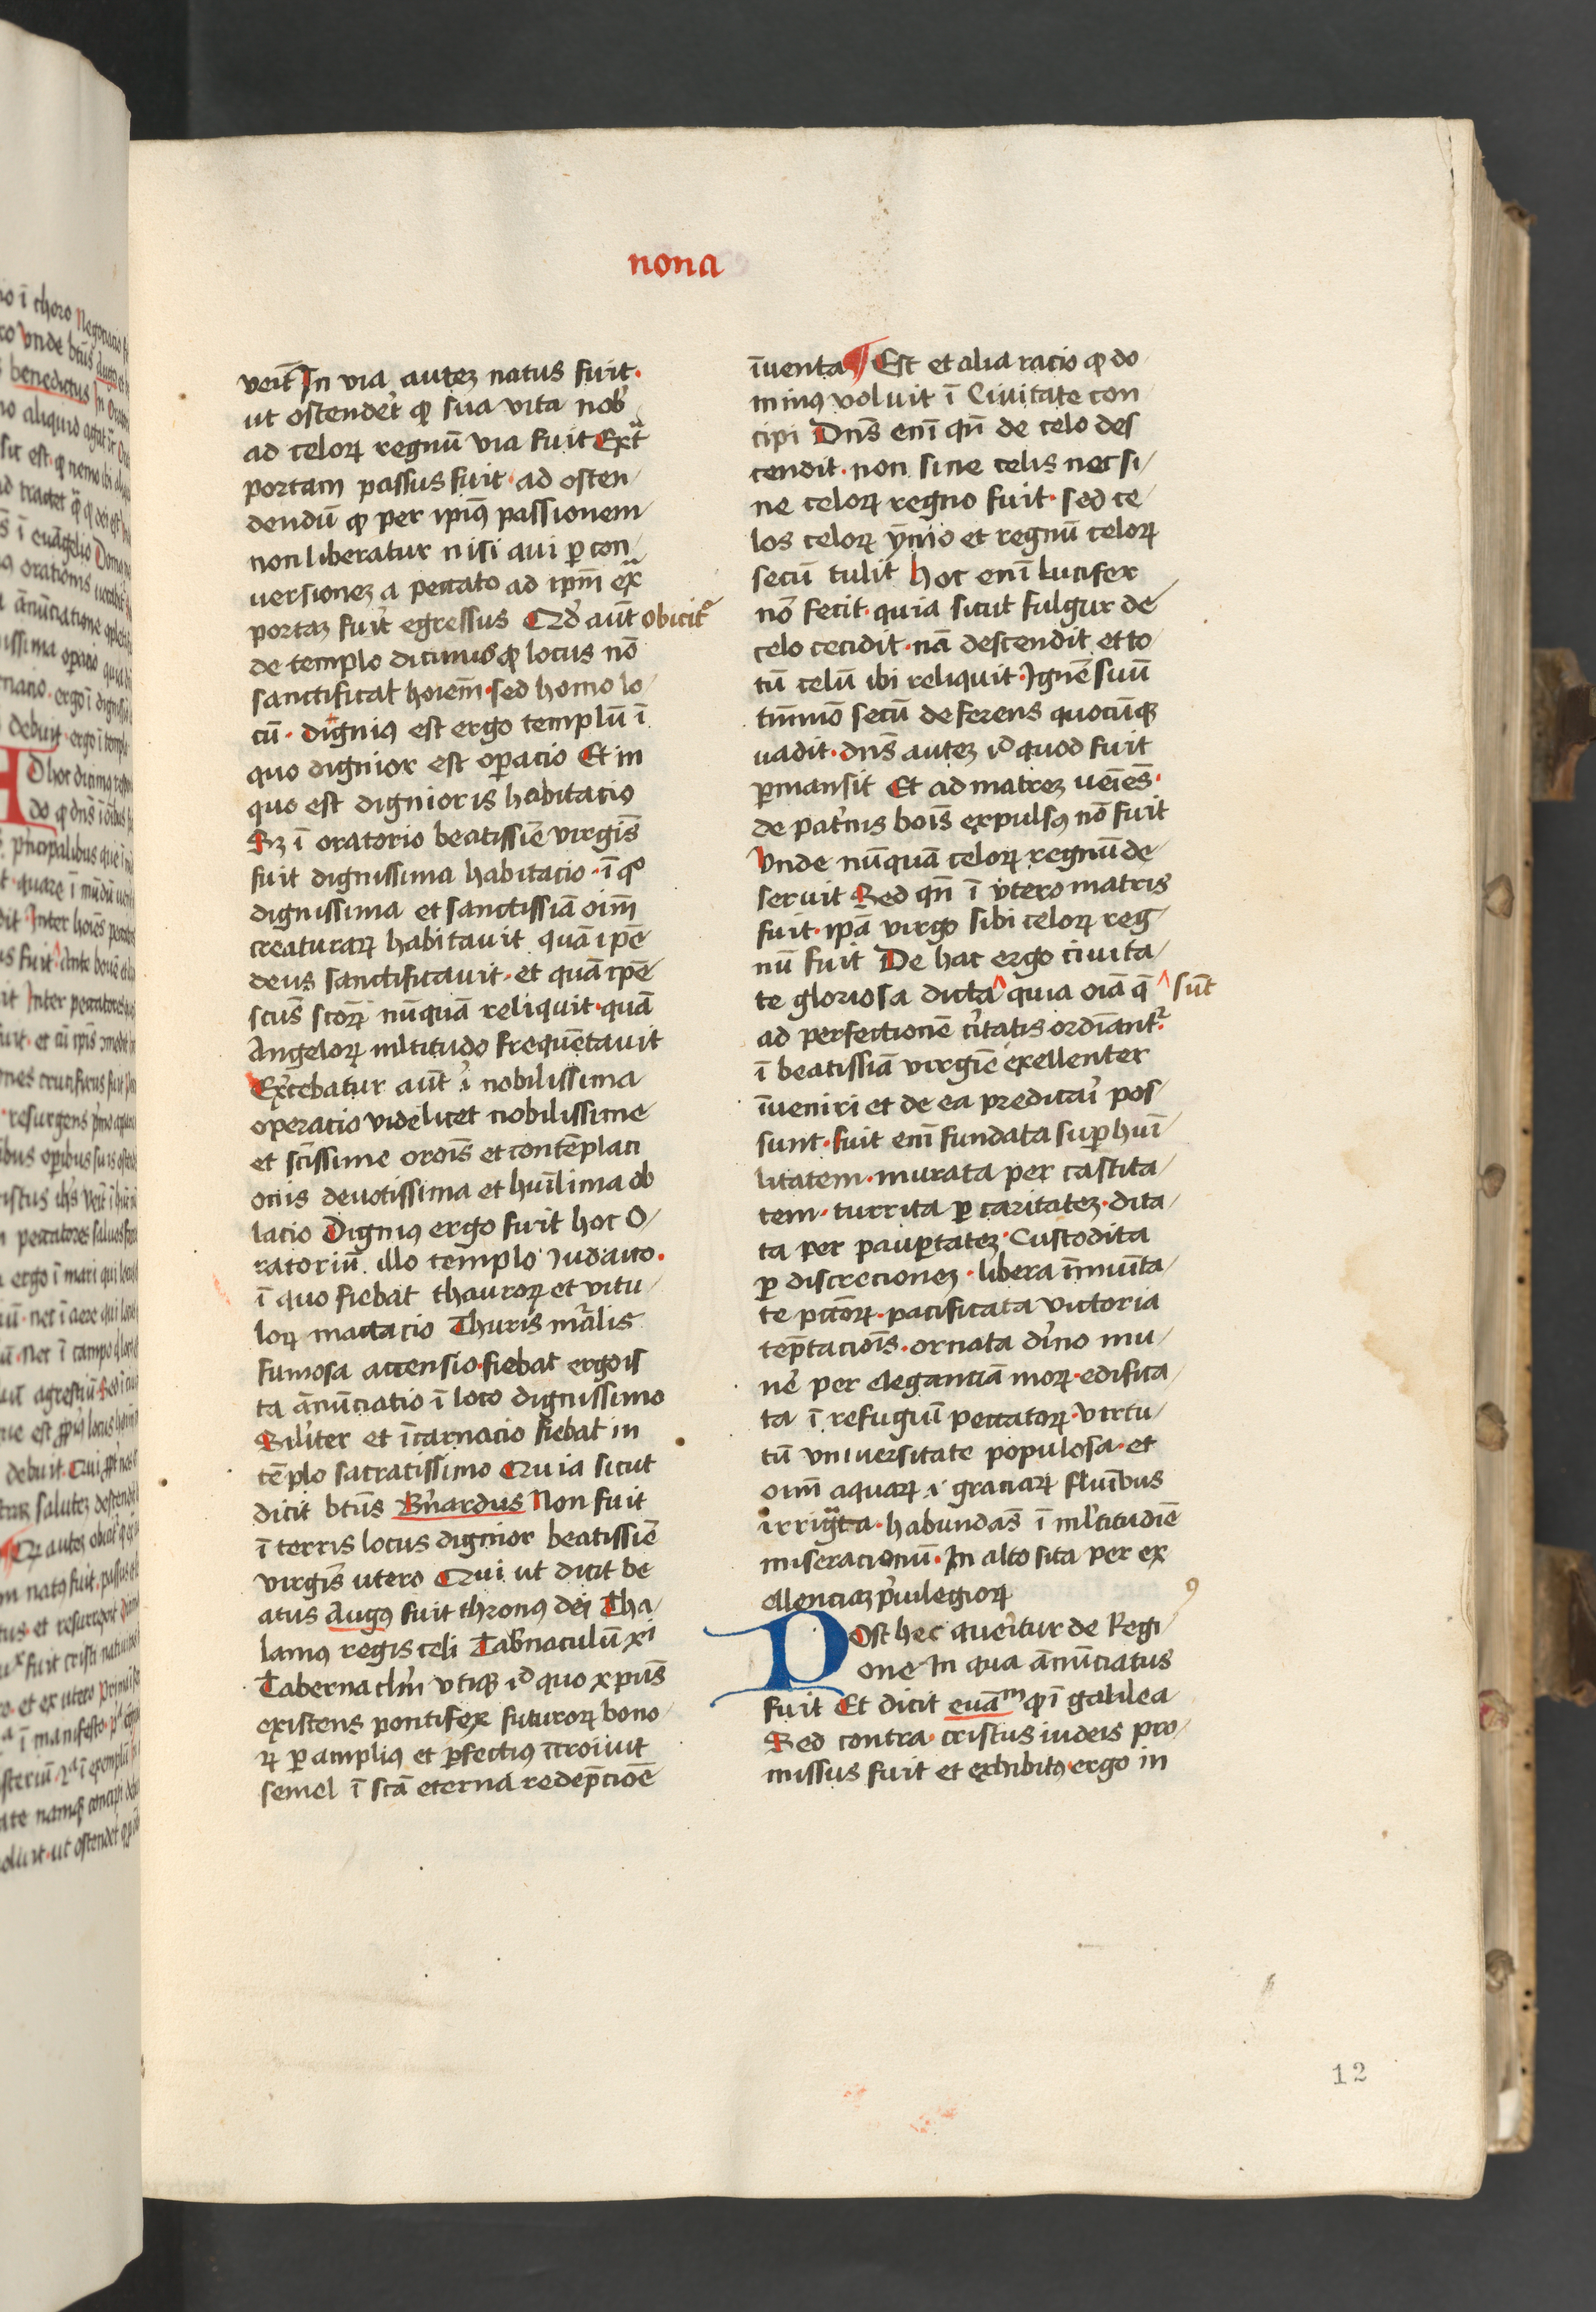 nona
veit̄ In via autez natus fuit·
ut ostender̄t ꝙ sua vita nob̄
ad celoꝝ regnū via fuit Extᵃ
portam passus fuit · ad osten
dendū ꝙ per ipiꝰ passionem
non liberatur nisi qui ꝑ con
versionez a peccato ad ipm̄ exᵃ
portaz fuit̄ egressus Qd̄ aut̄ obicitᷣ
de templo dicimus ꝙ locus nō
sanctificat hoiem̄ · sed homo lo
cū · dignius est ergo templū ī
quo dignior est oꝑacio Et in
quo est dignioris habitacio
Sꝫ ī oratorio beatissie̅ virgis̄
fuit dignissima habitacio · ī qͦ
dignissima et sanctissiā oim̄
creaturaꝝ habitavit quā ipē
deus sanctificavit · et quā ipē
scūs scōꝝ nūquā reliquit · quā
Angeloꝝ ml̄titudo frequētavit
Ex̄cebatur aut̄ ī nobilissima
operacio videlicet nobilissime
et scīssime orōis et contēplaci
onis devotissima et huīlima ob
lacio Digniꝰ ergo fuit hoc O
ratoriū illo templo Iudaico·
ī quo fiebat thauroꝝ et vitu
loꝝ mactacio Thuris mālis
fumosa accensio · fiebat ergo is
ta ānūciatio ī loco dignissimo
Silīter et īcarnacio fiebat in
tēplo sacratissimo Quia sicut
dicit btūs Bn̄ardus Non fuit
ī terris locus dignior beatissiē
virgis̄ utero Qui ut dicit be
atus Augꝰ fuit thronꝰ dei Tha
lamꝰ regis celi Tab̄naculū xⁱ
Tabernaclm̄ vtiqꝫ ī quo xpūs
existens pontifex futuroꝝ bono
ꝝ ꝑ ampliꝰ et ꝑfectiꝰ ītroivit
semel ī scā eterna redēpciōē
īuenta ¶ Est et alia racio ꝙ do
minꝰ voluit ī Ciuitate con
cipi Dns̄ enī qn̄ de celo des
cendit · non sine celis nec si
ne celoꝝ regno fuit · sed ce
los celoꝝ ȳmo et regnū celoꝝ
secū tulit hoc enī Lucifer
nō fecit · quia sicut fulgur de
celo cecidit · nā descendit et to
tū celū ibi reliquit · Ignē suū
tm̄mō secū deferens quocūqꝫ
uadit · dns̄ autez id quod fuit
ꝑmansit Et ad matrez ueiēs̄·
de pat̄nis bois̄ expulsꝰ nō fuit
Unde nūquā celoꝝ regnū de
seruit Sed qn̄ ī vtero matris
fuit · ipā virgo sibi celoꝝ reg
nū fuit De hac ergo ciuita
te gloriosa dicta ^ quia oīa q̄ ^ sūt
ad perfectionē c̄itatis ordīantᷣ·
ī beatissiā virgīe exellenter
īueniri et de ea predicāi pos
sunt · fuit enī fundata suꝑ huī
litatem · murata per castita
tem · turrita ꝑ caritatez · dita
ta per pauꝑtatez · Custodita
ꝑ discrecionez · libera īmuīta
te pctōꝝ · pacificata victoria
tēptaciois̄ · ornata dīno mu
nē per elegantiā moꝝ · edifica
ta ī refugiū peccatoꝝ · virtu
tū vniuersitate populosa · et
oīm aquaꝝ ī graciaꝝ fluībus
irrigata · habundās ī ml̄titudīe
miseracionū · In alto sita per ex
ellenciaz p̄uilegioꝝ
Post hec queritur de Regi
one In qua ānūciatus
fuit Et dicit euāᵐ ꝙ ī galilea
Sed contra · cristus iudeis pro
missus fuit et exhibitꝰ · ergo in
12